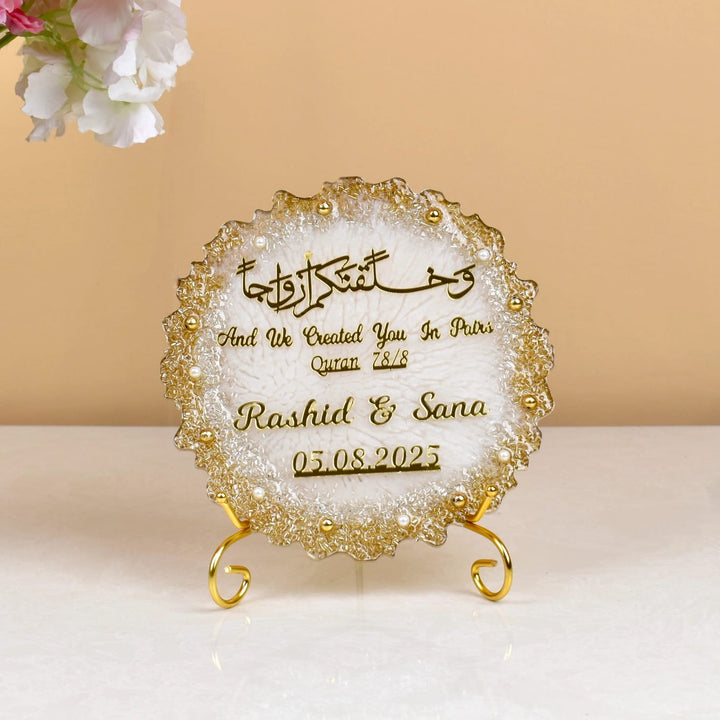 وَخلَقنَكم أزواجاً
And We Created You In Pairs
Quran 78/8
Rashid & Sana
05.08.2025